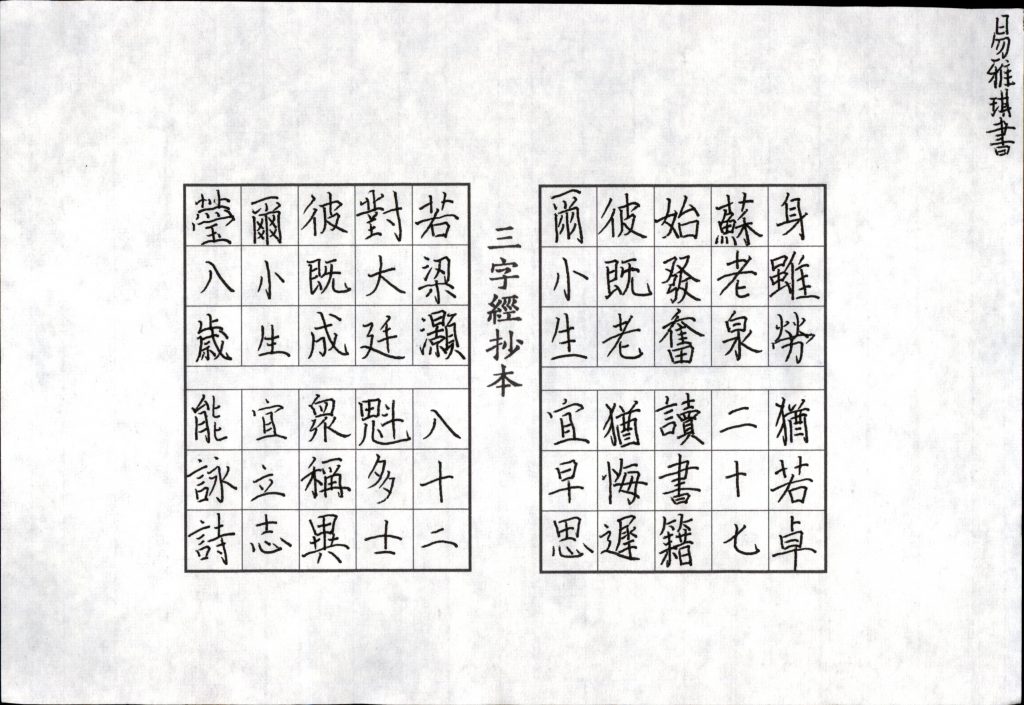 易雅琪書
身雖勞 猶若卓
蘇老泉 二十七
始發奮 讀書籍
彼既老 猶悔遲
爾小生 宜早思
三字經抄本
若梁灝 八十二
對大廷 魁多士
彼既成 眾稱異
爾小生 宜立志
瑩八歲 能詠詩